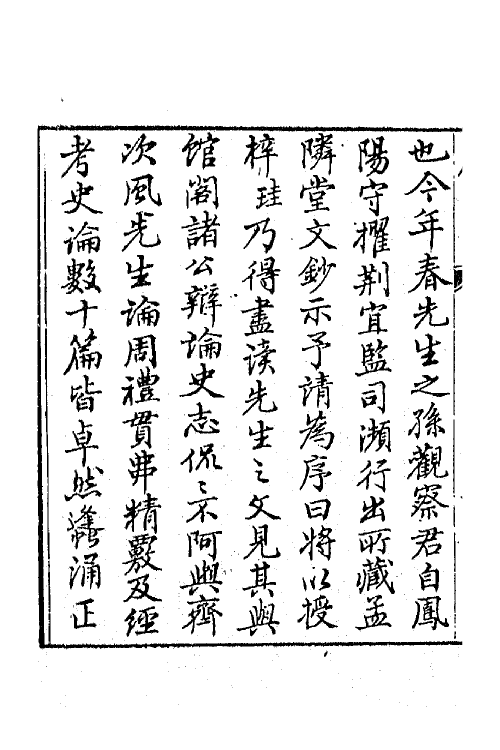 也今年春先生之孫觀察君自鳳
陽守擢荆宜監司瀕行出所藏孟
隣堂文鈔示予請為序曰將以授
梓珪乃得盡读先生之文見其與
馆阁諸公辯論史志侃〻不阿與齊
次風先生論周禮貫弗精覈及經
考史論數十篇皆卓然涌正